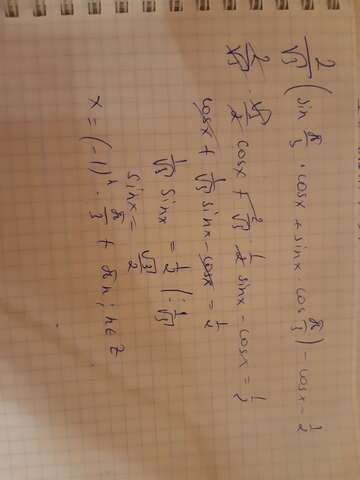 2/√3 (sin π/3 · cosx + sinx · cos π/3) - cosx - 1/2
2/√3 · √3/2 cosx + 2/√3 · 1/2 sinx - cosx = 1/2
cosx + 1/√3 sinx - cosx = 1/2
1/√3 sinx = 1/2 | : 1/√3
sinx = √3/2
x = (-1)ⁿ · π/3 + πn; n∈Z